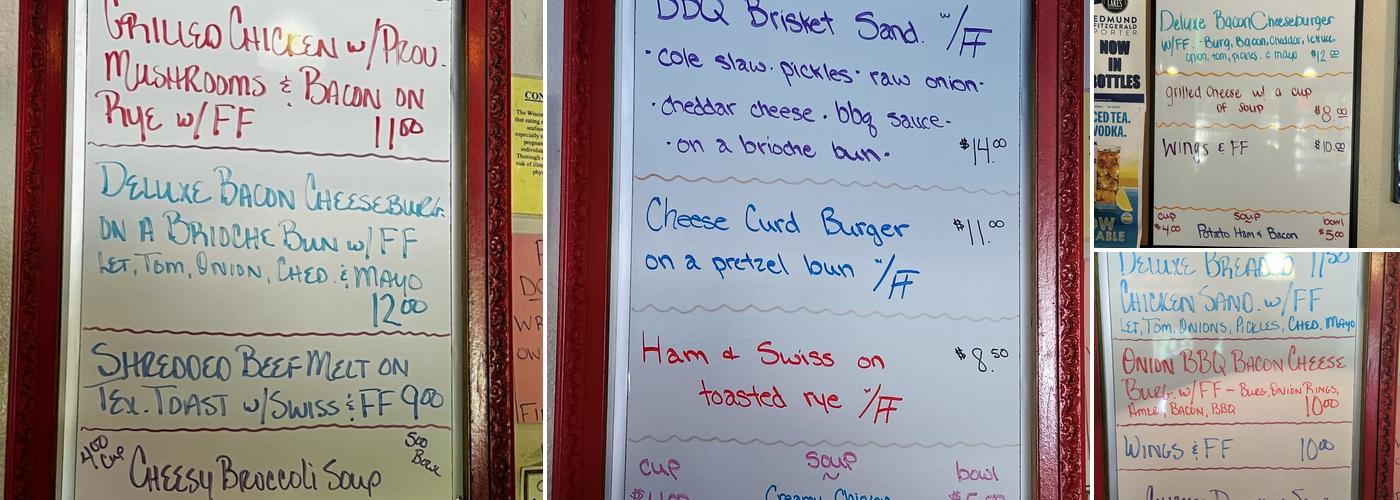 GRILLED CHICKEN w/PROV.
MUSHROOMS & BACON ON
RYE w/FF 11.00
DELUXE BACON CHEESEBURG.
ON A BRIOCHE BUN w/FF
LET, TOM, ONION, CHED. & MAYO
12.00
SHREDDED BEEF MELT ON
TEX. TOAST w/SWISS & FF 9.00
4.00 CUP
5.00 BOWL
CHEESY BROCCOLI SOUP
BBQ Brisket Sand. w/FF
• cole slaw • pickles • raw onion •
• cheddar cheese • bbq sauce •
• on a brioche bun • $14.00
Cheese Curd Burger $11.00
on a pretzel bun w/FF
Ham & Swiss on $8.50
toasted rye w/FF
cup soup bowl
EDMUND
FITZGERALD
PORTER
NOW
IN
BOTTLES
Deluxe Bacon Cheeseburger
w/FF - Burg, Bacon, Cheddar, lettuce,
onion, tom, pickles, & mayo $12.00
grilled cheese w/ a cup
of soup $8.00
Wings & FF $10.00
cup soup bowl
$4.00 Potato Ham & Bacon $5.00
DELUXE BREADED 11.50
CHICKEN SAND. w/FF
LET, TOM, ONIONS, PICKLES, CHED. MAYO
ONION BBQ BACON CHEESE
BURG. w/FF - BURG, ONION RINGS,
AMER, BACON, BBQ 10.00
WINGS & FF 10.00